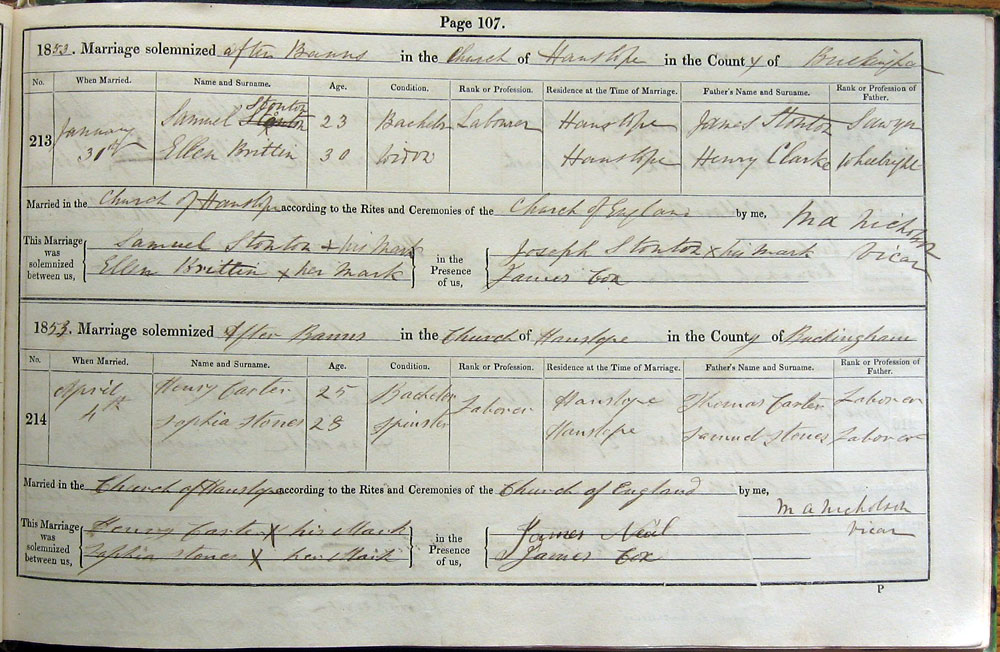 Page 107.
1853. Marriage solemnized after Banns in the Church of Hanslope in the County of Buckingham
No. When Married. Name and Surname. Age. Condition. Rank or Profession. Residence at the Time of Marriage. Father's Name and Surname. Rank or Profession of Father.
Stonton
213 January 30th Samuel Stanton 23 Bachelor Labourer Hanslope James Stonton Sawyer
Ellen Brittin 30 Widow Hanslope Henry Clarke Wheelright
Married in the Church of Hanslope according to the Rites and Ceremonies of the Church of England by me, M A Nicholson
Vicar
This Marriage was solemnized between us, Samuel Stonton x his Mark in the Presence of us, Joseph Stonton x his Mark
Ellen Brittin x her Mark James Cox
1853. Marriage solemnized After Banns in the Church of Hanslope in the County of Buckingham
No. When Married. Name and Surname. Age. Condition. Rank or Profession. Residence at the Time of Marriage. Father's Name and Surname. Rank or Profession of Father.
214 April 4th Henry Carter 25 Bachelor Laborer Hanslope Thomas Carter Laborer
Sophia Stones 28 Spinster Hanslope Samuel Stones Laborer
Married in the Church of Hanslope according to the Rites and Ceremonies of the Church of England by me, M A Nicholson
Vicar
This Marriage was solemnized between us, Henry Carter X his Mark in the Presence of us, James
Sophia Stones X her Mark James Cox
P